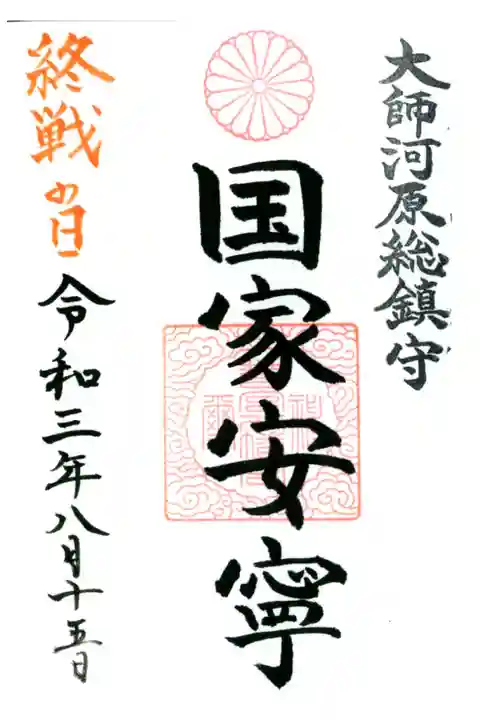 大師河原総鎮守
国家安寧
終戦の日
令和三年八月十五日